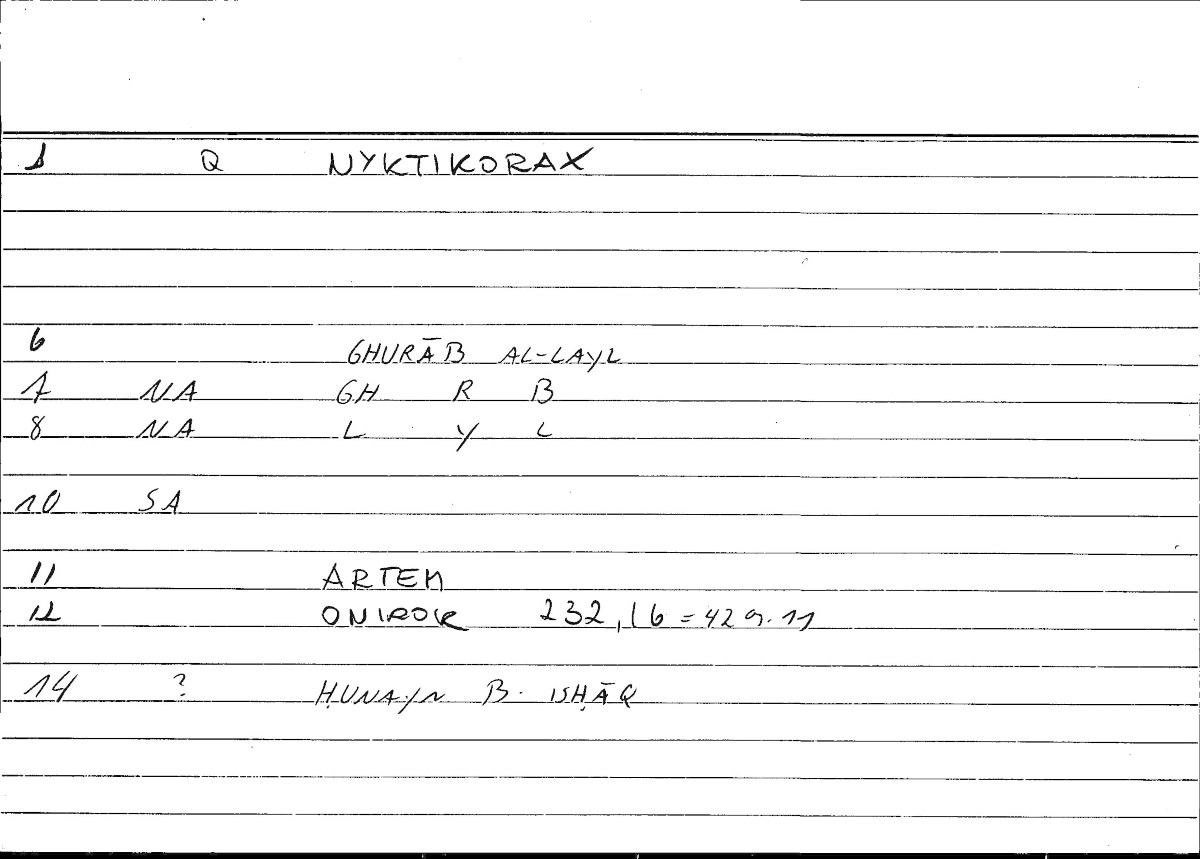 1 Q NYKTIKORAX
6 GHURĀB AL-LAYL
7 NA GH R B
8 NA L Y L
10 SA
11 ARTEM
12 ONIROK 232,16 = 429.11
14 ? ḤUNAYN B. ISḤĀQ